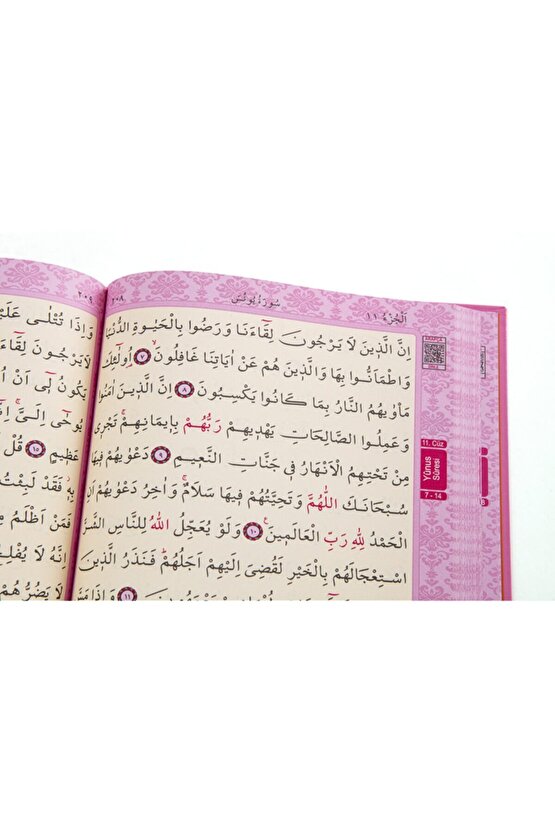 اَلْجُزْءُ ١١
سُورَةُ يُونُسَ
٢٠٨
اِنَّ الَّذ۪ينَ لَا يَرْجُونَ لِقَٓاءَنَا وَرَضُوا بِالْحَيٰوةِ الدُّنْيَا
وَاطْمَاَنُّوا بِهَا وَالَّذ۪ينَ هُمْ عَنْ اٰيَاتِنَا غَافِلُونَۙ ﴿٧﴾ اُو۬لٰٓئِكَ
مَأْوٰيهُمُ النَّارُ بِمَا كَانُوا يَكْسِبُونَ ﴿٨﴾ اِنَّ الَّذ۪ينَ اٰمَنُوا
وَعَمِلُوا الصَّالِحَاتِ يَهْد۪يهِمْ رَبُّهُمْ بِا۪يمَانِهِمْۚ تَجْر۪ي
مِنْ تَحْتِهِمُ الْاَنْهَارُ ف۪ي جَنَّاتِ النَّع۪يمِ ﴿٩﴾ دَعْوٰيهُمْ ف۪يهَا
سُبْحَانَكَ اللّٰهُمَّ وَتَحِيَّتُهُمْ ف۪يهَا سَلَامٌۚ وَاٰخِرُ دَعْوٰيهُمْ اَنِ
الْحَمْدُ لِلّٰهِ رَبِّ الْعَالَم۪ينَ۟ ﴿١٠﴾ وَلَوْ يُعَجِّلُ اللّٰهُ لِلنَّاسِ الشَّرَّ
اسْتِعْجَالَهُمْ بِالْخَيْرِ لَقُضِيَ اِلَيْهِمْ اَجَلُهُمْۜ فَنَذَرُ الَّذ۪ينَ
﴿١١﴾ وَاِذَا مَسَّ
11. Cüz
Yûnus
Sûresi
7 - 14
٢٠٩
وَاِذَا تُتْلٰى
لَا يَرْجُونَ
يَكُونُ ل۪ٓي اَنْ
يُوحٰٓى اِلَيَّۚ
عَظ۪يمٍ ﴿١٥﴾ قُلْ
بِه۪ۘ فَقَدْ لَبِثْتُ
فَمَنْ اَظْلَمُ
اِنَّهُ لَا
لَا يَضُرُّهُمْ